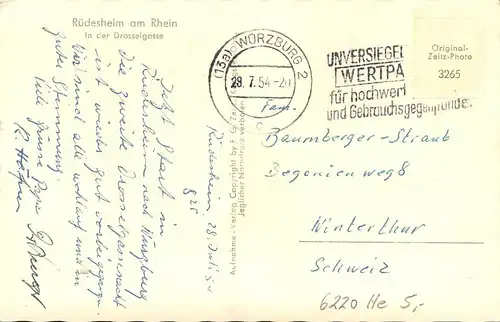 Rüdesheim am Rhein
In der Drosselgasse
Jetzt Start in
Rüdesheim nach Würzburg
8 25
Die zweite Drosselgassnacht
ist wieder gut vorbeigegangen.
Wir sind alle wohlauf und in
guter Stimmung.
Viele Grüsse
Rüdesheim 28. Juli 54
Aufnahme u. Verlag Copyright by
Jeglicher Nachdruck verboten
(13a) WÜRZBURG 2
28.7.54
UNVERSIEGEL
WERTPA
für hochwert
und Gebrauchsgegenstände
Original-
Zeitz-Photo
3265
Fam.
Baumberger-Straub
Begonienweg 8
Winterthur
Schweiz
6220 He 5,-